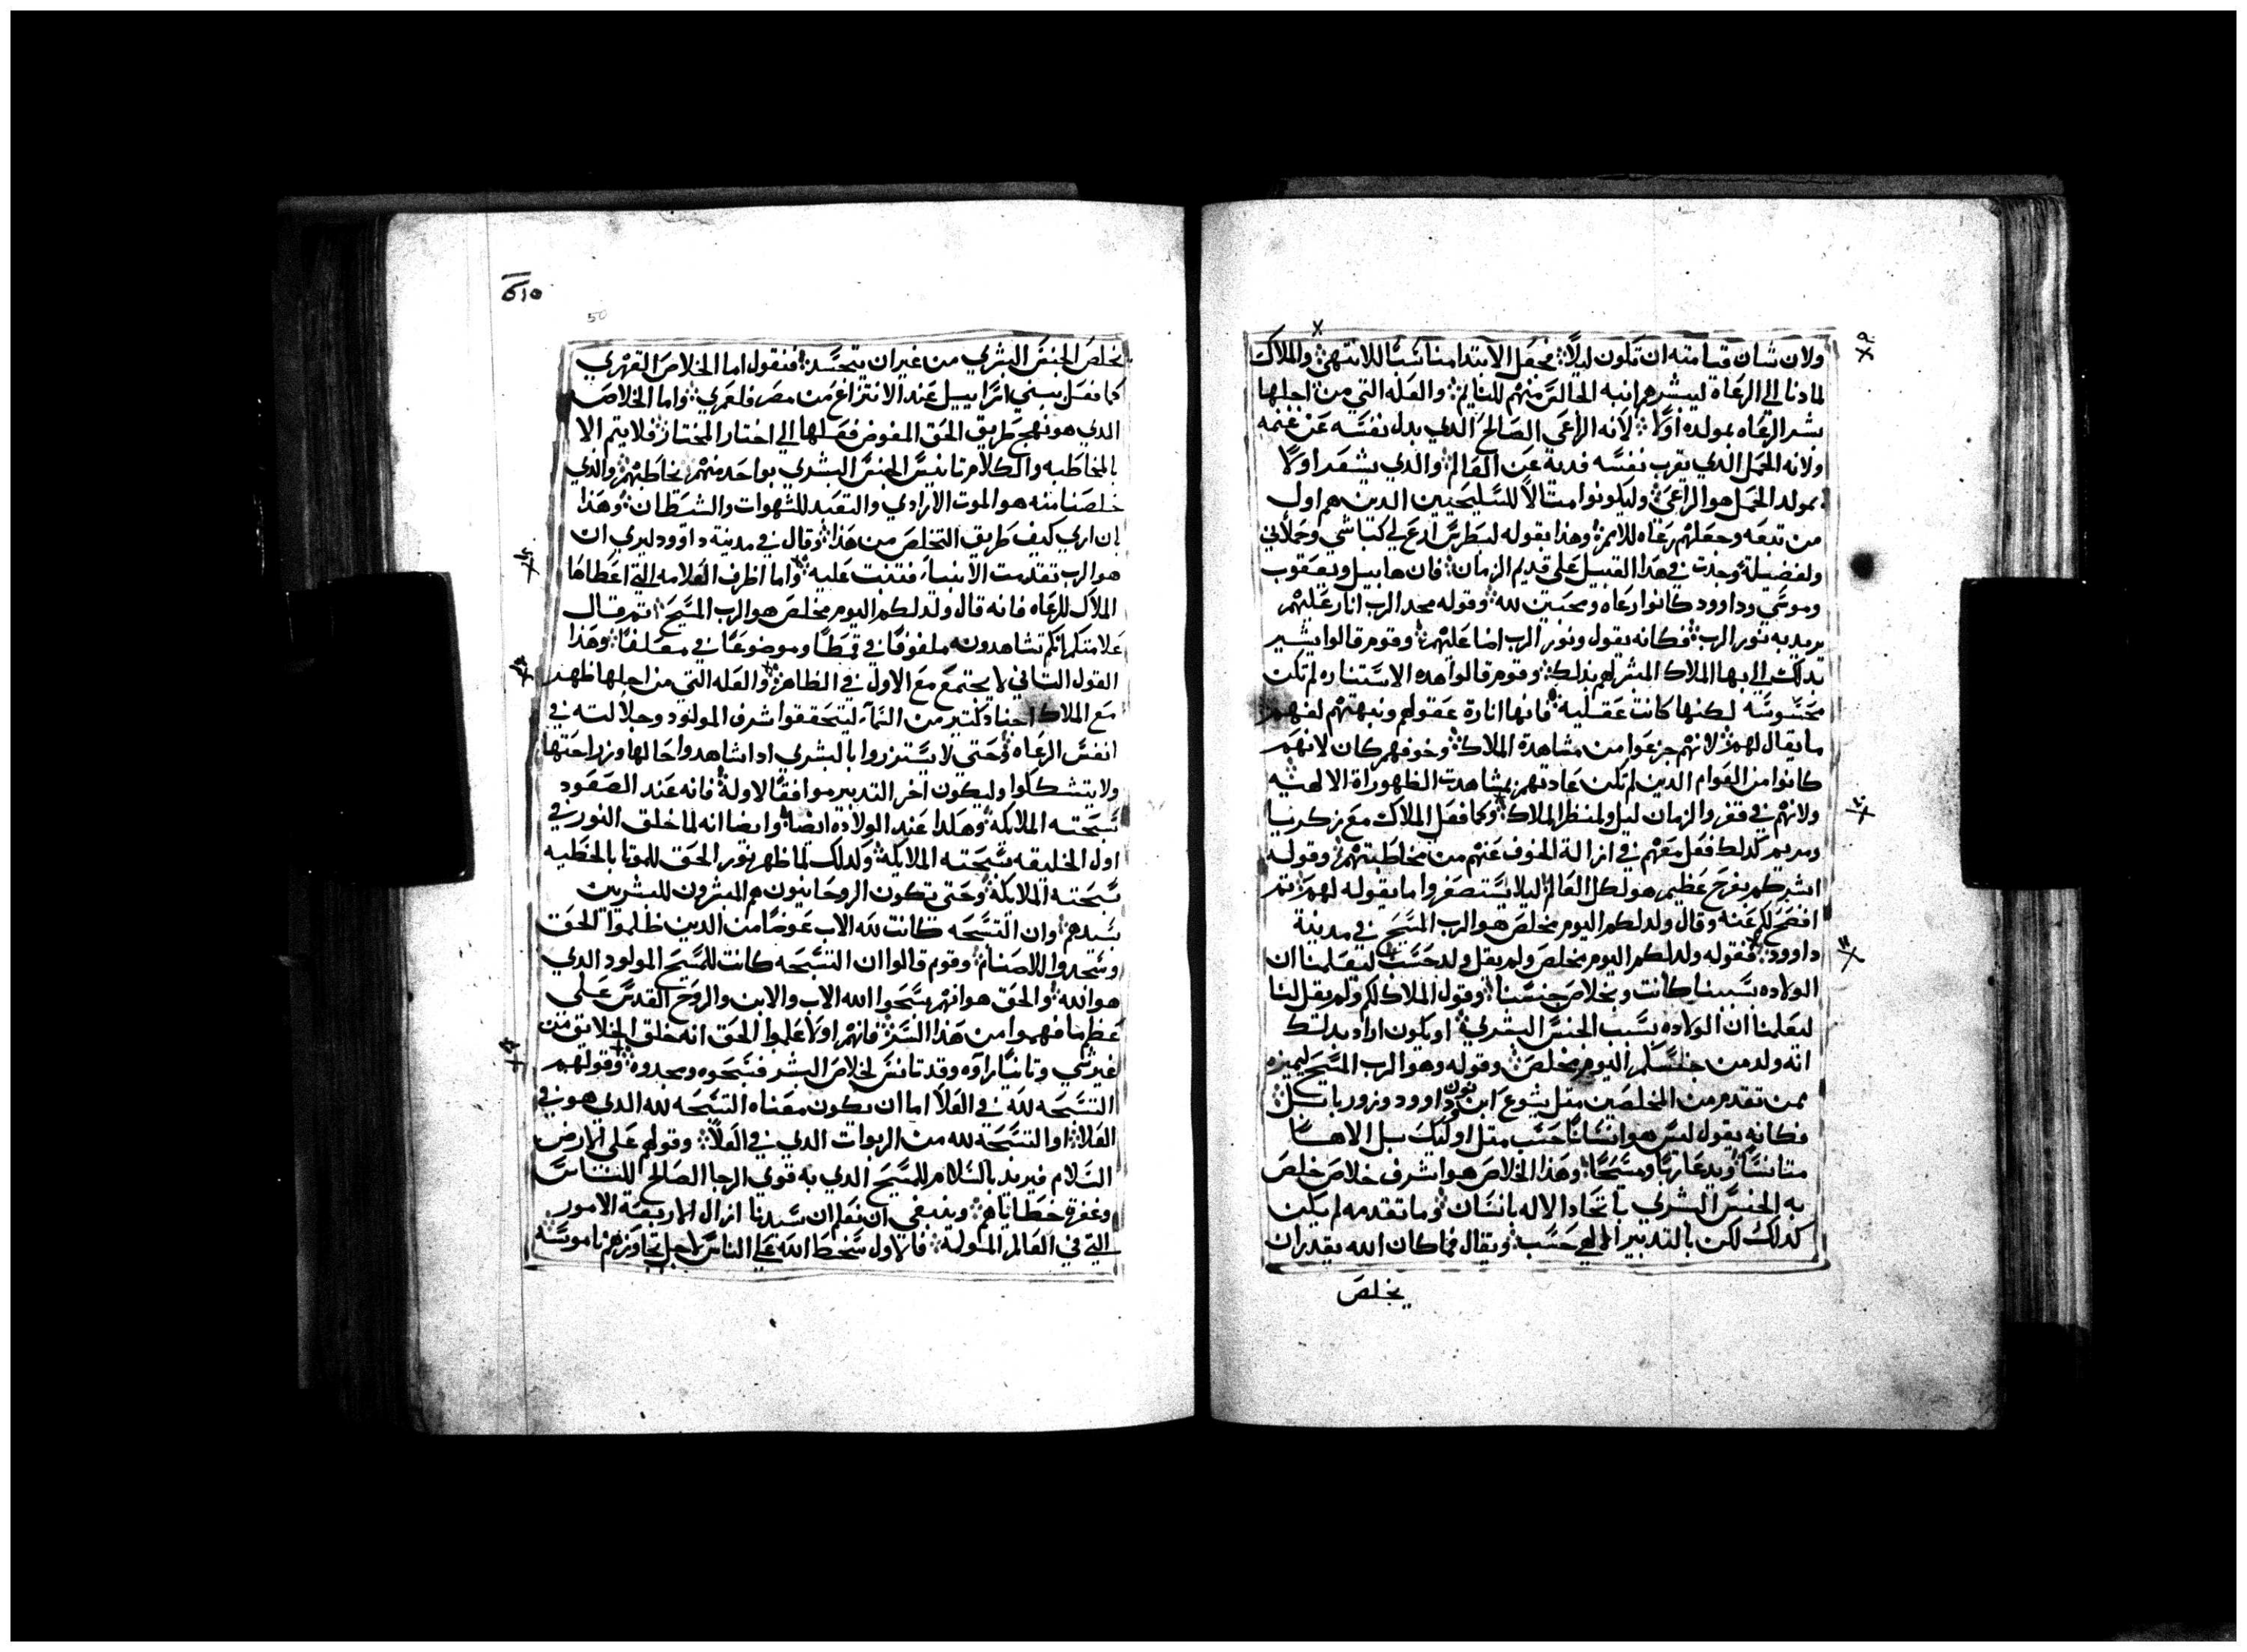 ولان شان قيامته ان تكون ليلاً فجعل الابتدا مناسبًا للانتهى والملاك
لما دنا الي الرعاة ليبشرهم انبه الجالس منهم للنايم والعله التي من اجلها
بشر الرعاه بمولده اولاً لانه الراعي الصالح الدي بدل نفسه عن غنمه
ولانه الحمل الدي يقرب نفسه فدية عن العالم والدي يشعر اولاً
بمولد الحمل هو الراعي وليكونوا مثالاً للسليحيين الدين هم اول
من تبعه وجعلهم رعاه للامم وهذا بقوله لبطرس ارع لي كباشي وحملاني
ولفضيلة وجدت في هدا القبيل علي قديم الزمان فان هابيل ويعقوب
وموسي وداوود كانوا رعاه ومحبين لله وقوله مجد الرب انار عليهم
يريد به نور الرب فكانه يقول ونور الرب اضا عليهم وقوم قالوا يشير
بدلك الي بها الملاك المبشر لهم بذلك وقوم قالوا هده الاستناره لم تكن
محسوسه لكنها كانت عقليه فانها انارة عقولهم ونبهتهم لفهم
ما يقال لهم لانهم جزعوا من مشاهدة الملاك وخوفهم كان لانهم
كانوا من القوام الدين لم تكن عادتهم بمشاهدت الظهوراة الالهيه
ولانهم في قفر والزمان ليل ولمنظر الملاك وكما فعل الملاك مع زكريا
ومريم كدلك فعل معهم في ازالة الخوف عنهم من مخاطبتهم وقوله
ابشركم بفرح عظيم هو لكل العالم ليلا يستصغروا ما يقوله لهم تم
افصح لهم عنه وقال ولد لكم اليوم مخلص هو الرب المسيح في مدينة
داوود فقوله ولد لكم اليوم مخلص ولم يقل ولد حسب ليعلمنا ان
الولاده بسببنا كانت وبخلاص جنسنا وقول الملاك لكم ولم يقل لنا
ليعلمنا ان الولاده بسبب الجنس البشري او يكون اراد بدلك
انه ولد من جنسكم اليوم مخلص وقوله وهو الرب المسيح ليميزه
ممن تقدم من المخلصين متل يشوع ابن نون وداوود وزور بابل
فكانه يقول ليس هو انسانًا حسب متل اوليك بل الاهـًا
متانسًا ويدعا ربًا ومسيحًا وهذا الخلاص هو اشرف خلاص خلص
به الجنس البشري باتحاد الاله بانسان وما تقدمه لم يكن
كدلك لكن بالتدبير الالهي حسب ويقال فما كان الله يقدر ان
يخلص
510
50
يخلص الجنس البشري من غير ان يتجسد فنقول اما الخلاص القهري
كما فعل ببني اسراييل عند الانتزاع من مصر فلعمري واما الخلاص
الدي هو نهج طريق الحق المفوض فعلها الي اختار المختار فلا يتم الا
بالمخاطبه والكلام تانيس الجنس البشري بواحد منهم يخاطبهم والدي
خلصنا منه هو الموت الارادي والتعبد للشهوات والشيطان وهذا
بان اري كيف طريق التخلص من هذا وقال في مدينة داوود ليري ان
هو الرب تقدمت الانبيا فتنبت عليه واما اظرف العلامه التي اعطاها
الملاك للرعاه فانه قال ولد لكم اليوم مخلص هو الرب المسيح تم قال
علامتكم انكم تشاهدونه ملفوفًا في قمطًا وموضوعًا في معلفًا وهذا
القول التاني لا يجتمع مع الاول في الظاهر والعله التي من اجلها ظهر
مع الملاك اجناد كتير من السماء ليتحققوا شرف المولود وجلالته في
انفس الرعاه وحتي لا يستزروا بالبشري ادا شاهدوا حالها وزراحتها
ولا يتشككوا وليكون اخر التدبير موافقًا لاولة فانه عند الصعود
سبحته الملايكة وهكدا عند الولاده ايضًا وايضا انه لما خلق النور في
اول الخليقه سبحته الملايكة وكدلك لما ظهر نور الحق للموتا بالخطيه
سبحته الملايكة وحتي تكون الروحانيون هم المبشرون للبشريين
بسيدهم وان التسبحه كانت لله الاب عوضًا من الدين ظلموا الحق
وسجدوا للاصنام وقوم قالوا ان التسبحه كانت للمسيح المولود الدي
هو الله والحق هو انهم سبحوا الله الاب والابن والروح القدس علي
عظم ما فهموا من هذا السر فانهم اولاً علموا الحق انه خلق الخلايق من
غير شي وتانيًا راوه وقد تانس لخلاص البشر فسبحوه ومجدوه وقولهم
التسبحه لله في العلا اما ان يكون معناه التسبحه لله الدي هو في
العلا او التسبحة لله من الربوات الدي في العلا وقولهم علي الارض
السلام فيريد بالسلام للمسيح الدي به قوي الرجا الصالح للناس
وغفرة خطاياهم وينبغي ان نعلم ان سيدنا ازال الاربعة الامور
التي في العالم المسوله فالاول سخط الله علي الناس لاجل تجاوزهم ناموسه